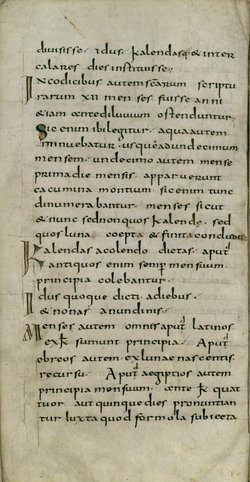 divisisse. idus. kalendasq; & inter
calares dies instituisse.
In codicibus autem scarum scriptu
rarum xii menses fuisse anni
& iam ante diluvium ostenduntur.
Sic enim ibi legitur. aqua autem
minuebatur. usque ad undecimum
mensem. undecimo autem mense
prima die mensis apparuerunt
cacumina montium sic enim tunc
dinumerabantur. menses sicut
& nunc sed non quos kalende. sed
quos luna coepta & finita conducit
Kalendas a colendo dictas. aput
antiquos enim semp mensium
principia colebantur.
Idus quoque dicti. a diebus.
& nonas a nundinis.
Menses autem omnis aput latinos
ex kl sumunt principia. Aput
ebreos autem. ex lunae nascentis.
recursu. Aput aegiptios autem
principia mensuum. ante kl quat
tuor aut quinque dies pronuntian
tur iuxta quod formola subiecta